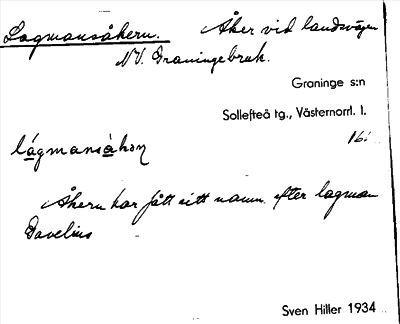 Lagmansåkern. Åker vid landsvägen
NV. Graninge bruk.
Graninge s:n
Sollefteå tg., Västernorrl. l.
161
lágmansàkən
Åkern har fått sitt namn efter lagman
Davelius
Sven Hiller 1934